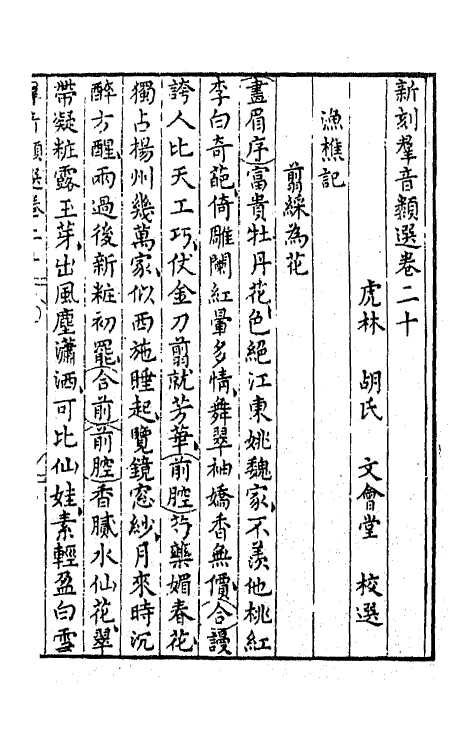 新刻羣音類選卷二十
虎林 胡氏 文會堂 校選
漁樵記
剪綵為花
畫眉序富貴牡丹花色絕江東姚魏家不羨他桃紅
李白奇葩倚雕闌紅暈多情舞翠袖嬌香無價合謾
誇人比天工巧伏金刀剪就芳華前腔芍藥媚春花
獨占楊州幾萬家似西施睡起覽鏡窓紗月來時沉
醉方醒雨過後新粧初罷合前前腔香膩水仙花翠
帶凝粧露玉芽出風塵瀟洒可比仙娃素輕盈白雪
音類選卷二十